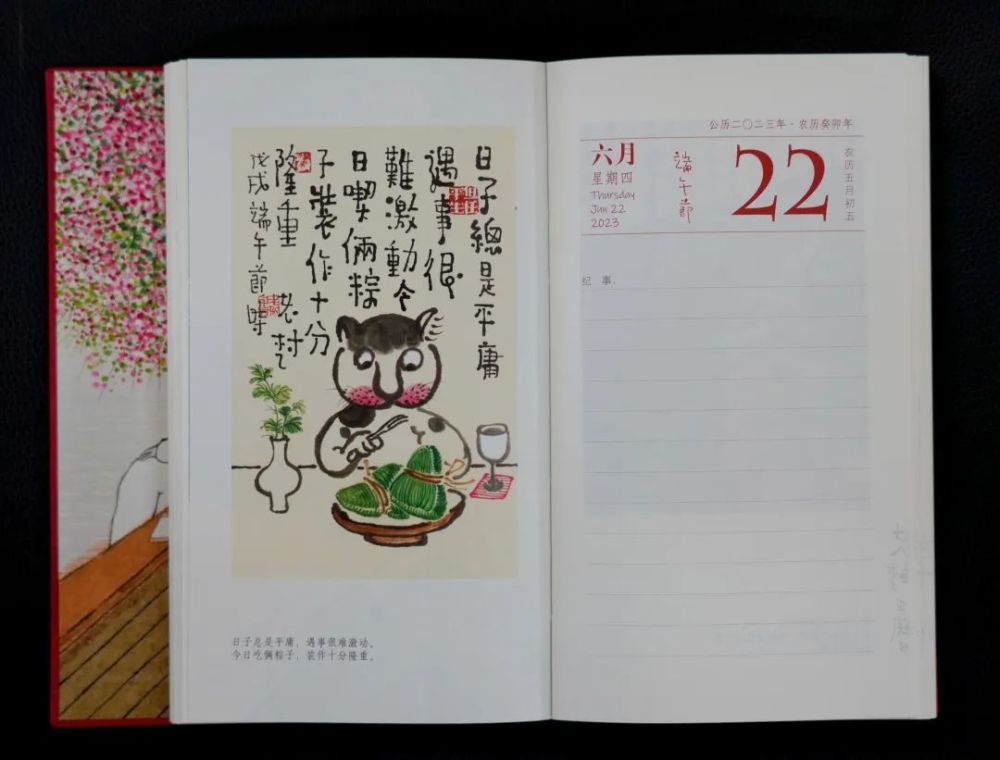 日子總是平庸
遇事很
難激動今
日喫倆粽
子裝作十分
隆重 老村
戊戌端午節時
日子总是平庸，遇事很难激动。
今日吃俩粽子，装作十分隆重。
公历二〇二三年·农历癸卯年
六月
星期四
Thursday
Jun 22
2023
端午节
22
农历五月初五
纪 事：